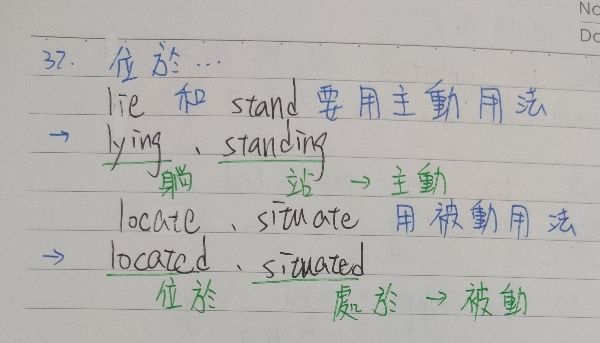 No
Do
37. 位於…
lie 和 stand 要用主動用法
→ lying、standing
躺 站 → 主動
locate、situate 用被動用法
→ located、situated
位於 處於 → 被動